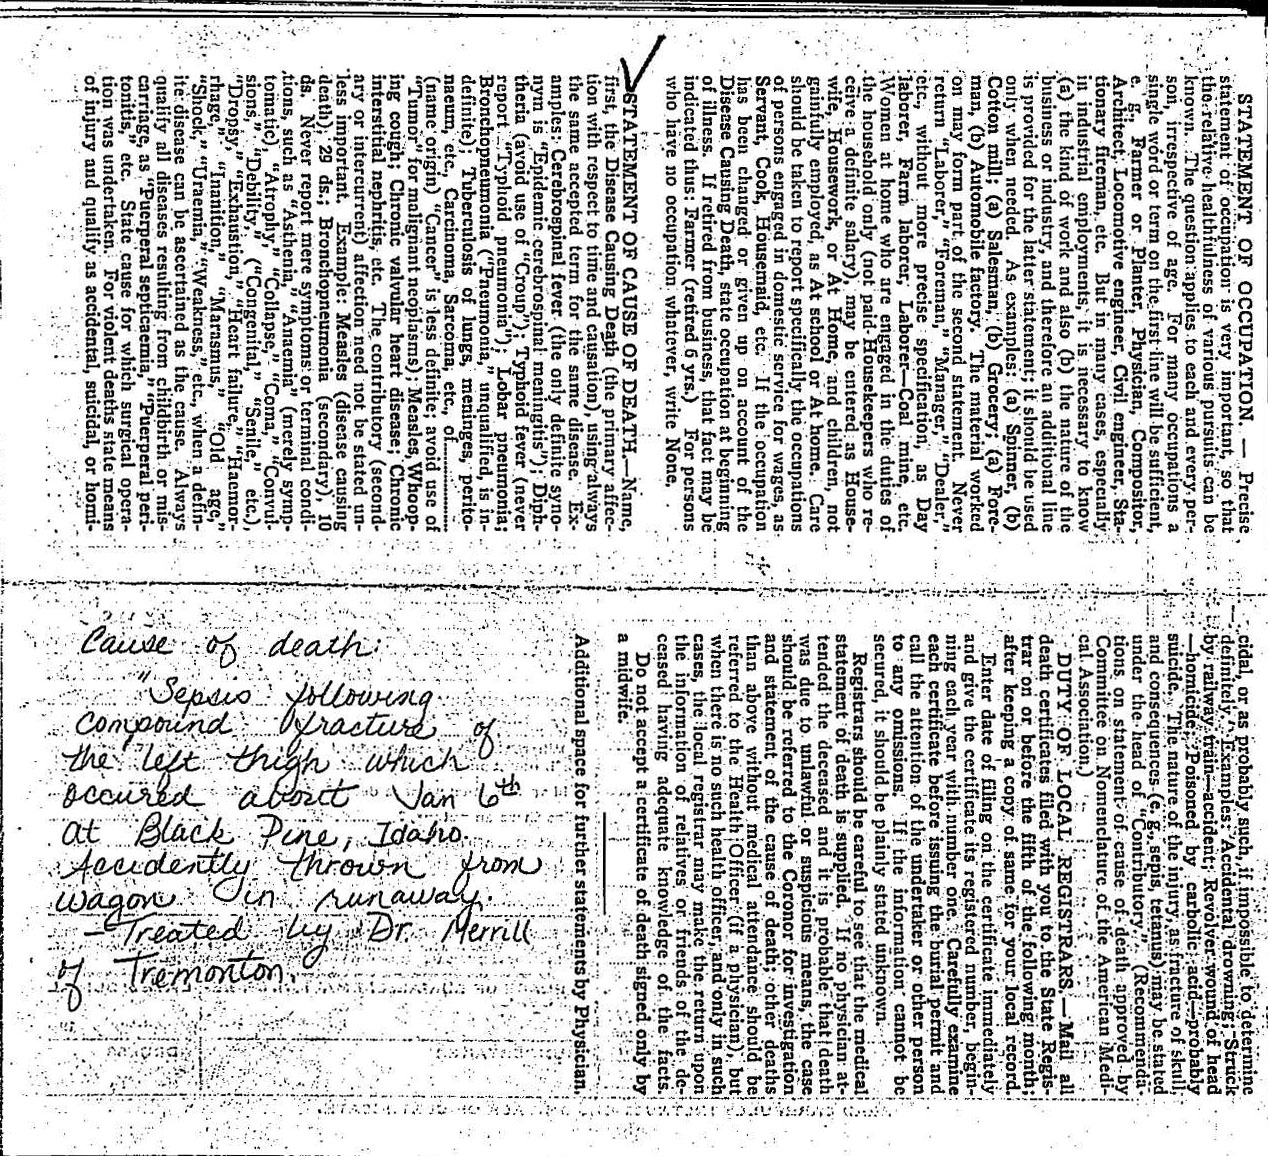 STATEMENT OF OCCUPATION. — Precise
statement of occupation is very important, so that
the relative healthfulness of various pursuits can be
known. The question applies to each and every per-
son, irrespective of age. For many occupations a
single word or term on the first line will be sufficient,
e. g., Farmer or Planter, Physician, Compositor,
Architect, Locomotive engineer, Civil engineer, Sta-
tionary fireman, etc. But in many cases, especually
in industrial employments, it is necessary to know
(a) the kind of work and also (b) the nature of the
business or industry, and therefore an additional line
is provided for the latter statement; it should be used
only when needed. As examples: (a) Spinner, (b)
Cotton mill; (a) Salesman, (b) Grocery; (a) Fore-
man, (b) Automobile factory. The material worked
on may form part of the second statement. Never
return "Laborer," "Foreman," "Manager," "Dealer,"
etc., without more precise specification, as Day
laborer, Farm laborer, Laborer—Coal mine, etc.
Women at home who are engaged in the duties of
the household only (not paid Housekeepers who re-
ceive a definite salary), may be entered as House-
wife, Housework, or At Home, and children, not
gainfully employed, as At school or At home. Care
should be taken to report specifically the occupations
of persons engaged in domestic service for wages, as
Servant, Cook, Housemaid, etc. If the occupation
has been changed or given up on account of the
Disease Causing Death, state occupation at beginning
of illness. If retired from business, that fact may be
indicated thus: Farmer (retired 6 yrs.) For persons
who have no occupation whatever, write None.
STATEMENT OF CAUSE OF DEATH.—Name,
first, the Disease Causing Death (the primary affec-
tion with respect to time and causation), using always
the same accepted term for the same disease. Ex-
amples: Cerebrospinal fever (the only definite syno-
nym is "Epidemic cerebrospinal meningitis"); Diph-
theria (avoid use of "Croup"); Typhoid fever (never
report "Typhoid pneumonia"); Lobar pneumonia;
Bronchopneumonia ("Pneumonia," unqualified, is in-
definite); Tuberculosis of lungs, meninges, perito-
naeum, etc., Carcinoma, Sarcoma, etc., of
(name origin) "Cancer" is less definite; avoid use of
"Tumor" for malignant neoplasms); Measles, Whoop-
ing cough; Chronic valvular heart disease; Chronic
interstitial nephritis, etc. The contributory (second-
ary or intercurrent) affection need not be stated un-
less important. Example: Measles (disease causing
death), 29 ds.; Bronchopneumonia (secondary), 10
ds. Never report mere symptoms or terminal condi-
tions, such as "Asthenia," "Anaemia" (merely symp-
tomatic), "Atrophy," "Collapse," "Coma," "Convul-
sions," "Debility," ("Congenital," "Senile," etc.)
"Dropsy," "Exhaustion," "Heart failure," "Haemor-
rhage," "Inanition," "Marasmus," "Old age,"
"Shock," "Uraemia," "Weakness," etc., when a defin-
ite disease can be ascertained as the cause. Always
qualify all diseases resulting from childbirth or mis-
carriage, as "Puerperal septicaemia," "Puerperal peri-
tonitis," etc. State cause for which surgical opera-
tion was undertaken. For violent deaths state means
of injury and qualify as accidental, suicidal, or homi-
cidal, or as probably such, if impossible to determine
definitely. Examples: Accidental drowning; Struck
by railway train—accident; Revolver wound of head
—homicide; Poisoned by carbolic acid—probably
suicide. The nature of the injury, as fracture of skull,
and consequences (e. g. sepis, tetanus) may be stated
under the head of "Contributory." (Recommenda-
tions on statement of cause of death approved by
Committee on Nomenclature of the American Medi-
cal Association.)
DUTY OF LOCAL REGISTRARS.—Mail all
death certificates filed with you to the State Regis-
trar on or before the fifth of the following month;
after keeping a copy of same for your local record.
Enter date of filing on the certificate immediately
and give the certificate its registered number, begin-
ning each year with number one. Carefully examine
each certificate before issuing the burial permit and
call the attention of the undertaker or other person
to any omissions. If the information cannot be
secured, it should be plainly stated unknown.
Registrars should be careful to see that the medical
statement of death is supplied. If no physician at-
tended the deceased and it is probable that death
was due to unlawful or suspicious means, the case
should be referred to the Coronor for investigation
and statement of the cause of death; other deaths
than above without medical attendance should be
referred to the Health Officer (if a physician), but
when there is no such health officer, and only in such
cases, the local registrar may make the return upon
the information of relatives or friends of the de-
ceased having adequate knowledge of the facts.
Do not accept a certificate of death signed only by
a midwife.
Additional space for further statements by Physician.
Cause of death:
"Sepsis following
compound fracture of
the left thigh which
occured about Jan 6th
at Black Pine, Idaho.
Accidently thrown from
wagon in runaway.
- Treated by Dr. Merrill
of Tremonton.